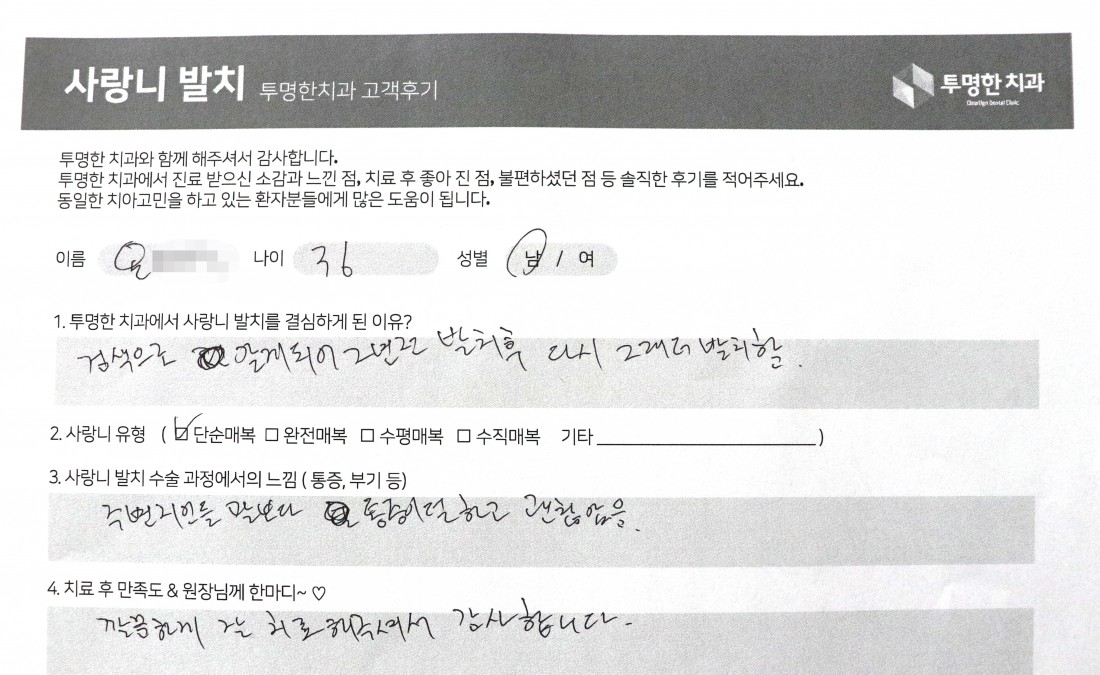 사랑니 발치 투명한치과 고객후기
투명한 치과
Clearlign Dental Clinic
투명한 치과와 함께 해주셔서 감사합니다.
투명한 치과에서 진료 받으신 소감과 느낀 점, 치료 후 좋아 진 점, 불편하셨던 점 등 솔직한 후기를 적어주세요.
동일한 치아고민을 하고 있는 환자분들에게 많은 도움이 됩니다.
이름 나이 36 성별 남 / 여
1. 투명한 치과에서 사랑니 발치를 결심하게 된 이유?
검색으로 알게되어 2년전 발치후 다시 그래서 발치함.
2. 사랑니 유형 ( ☑ 단순매복 □ 완전매복 □ 수평매복 □ 수직매복 기타 )
3. 사랑니 발치 수술 과정에서의 느낌 ( 통증, 부기 등)
주변지인들 말보다 통증이덜하고 괜찮았음.
4. 치료 후 만족도 & 원장님께 한마디~ ♡
깔끔하게 잘 치료해주셔서 감사합니다.